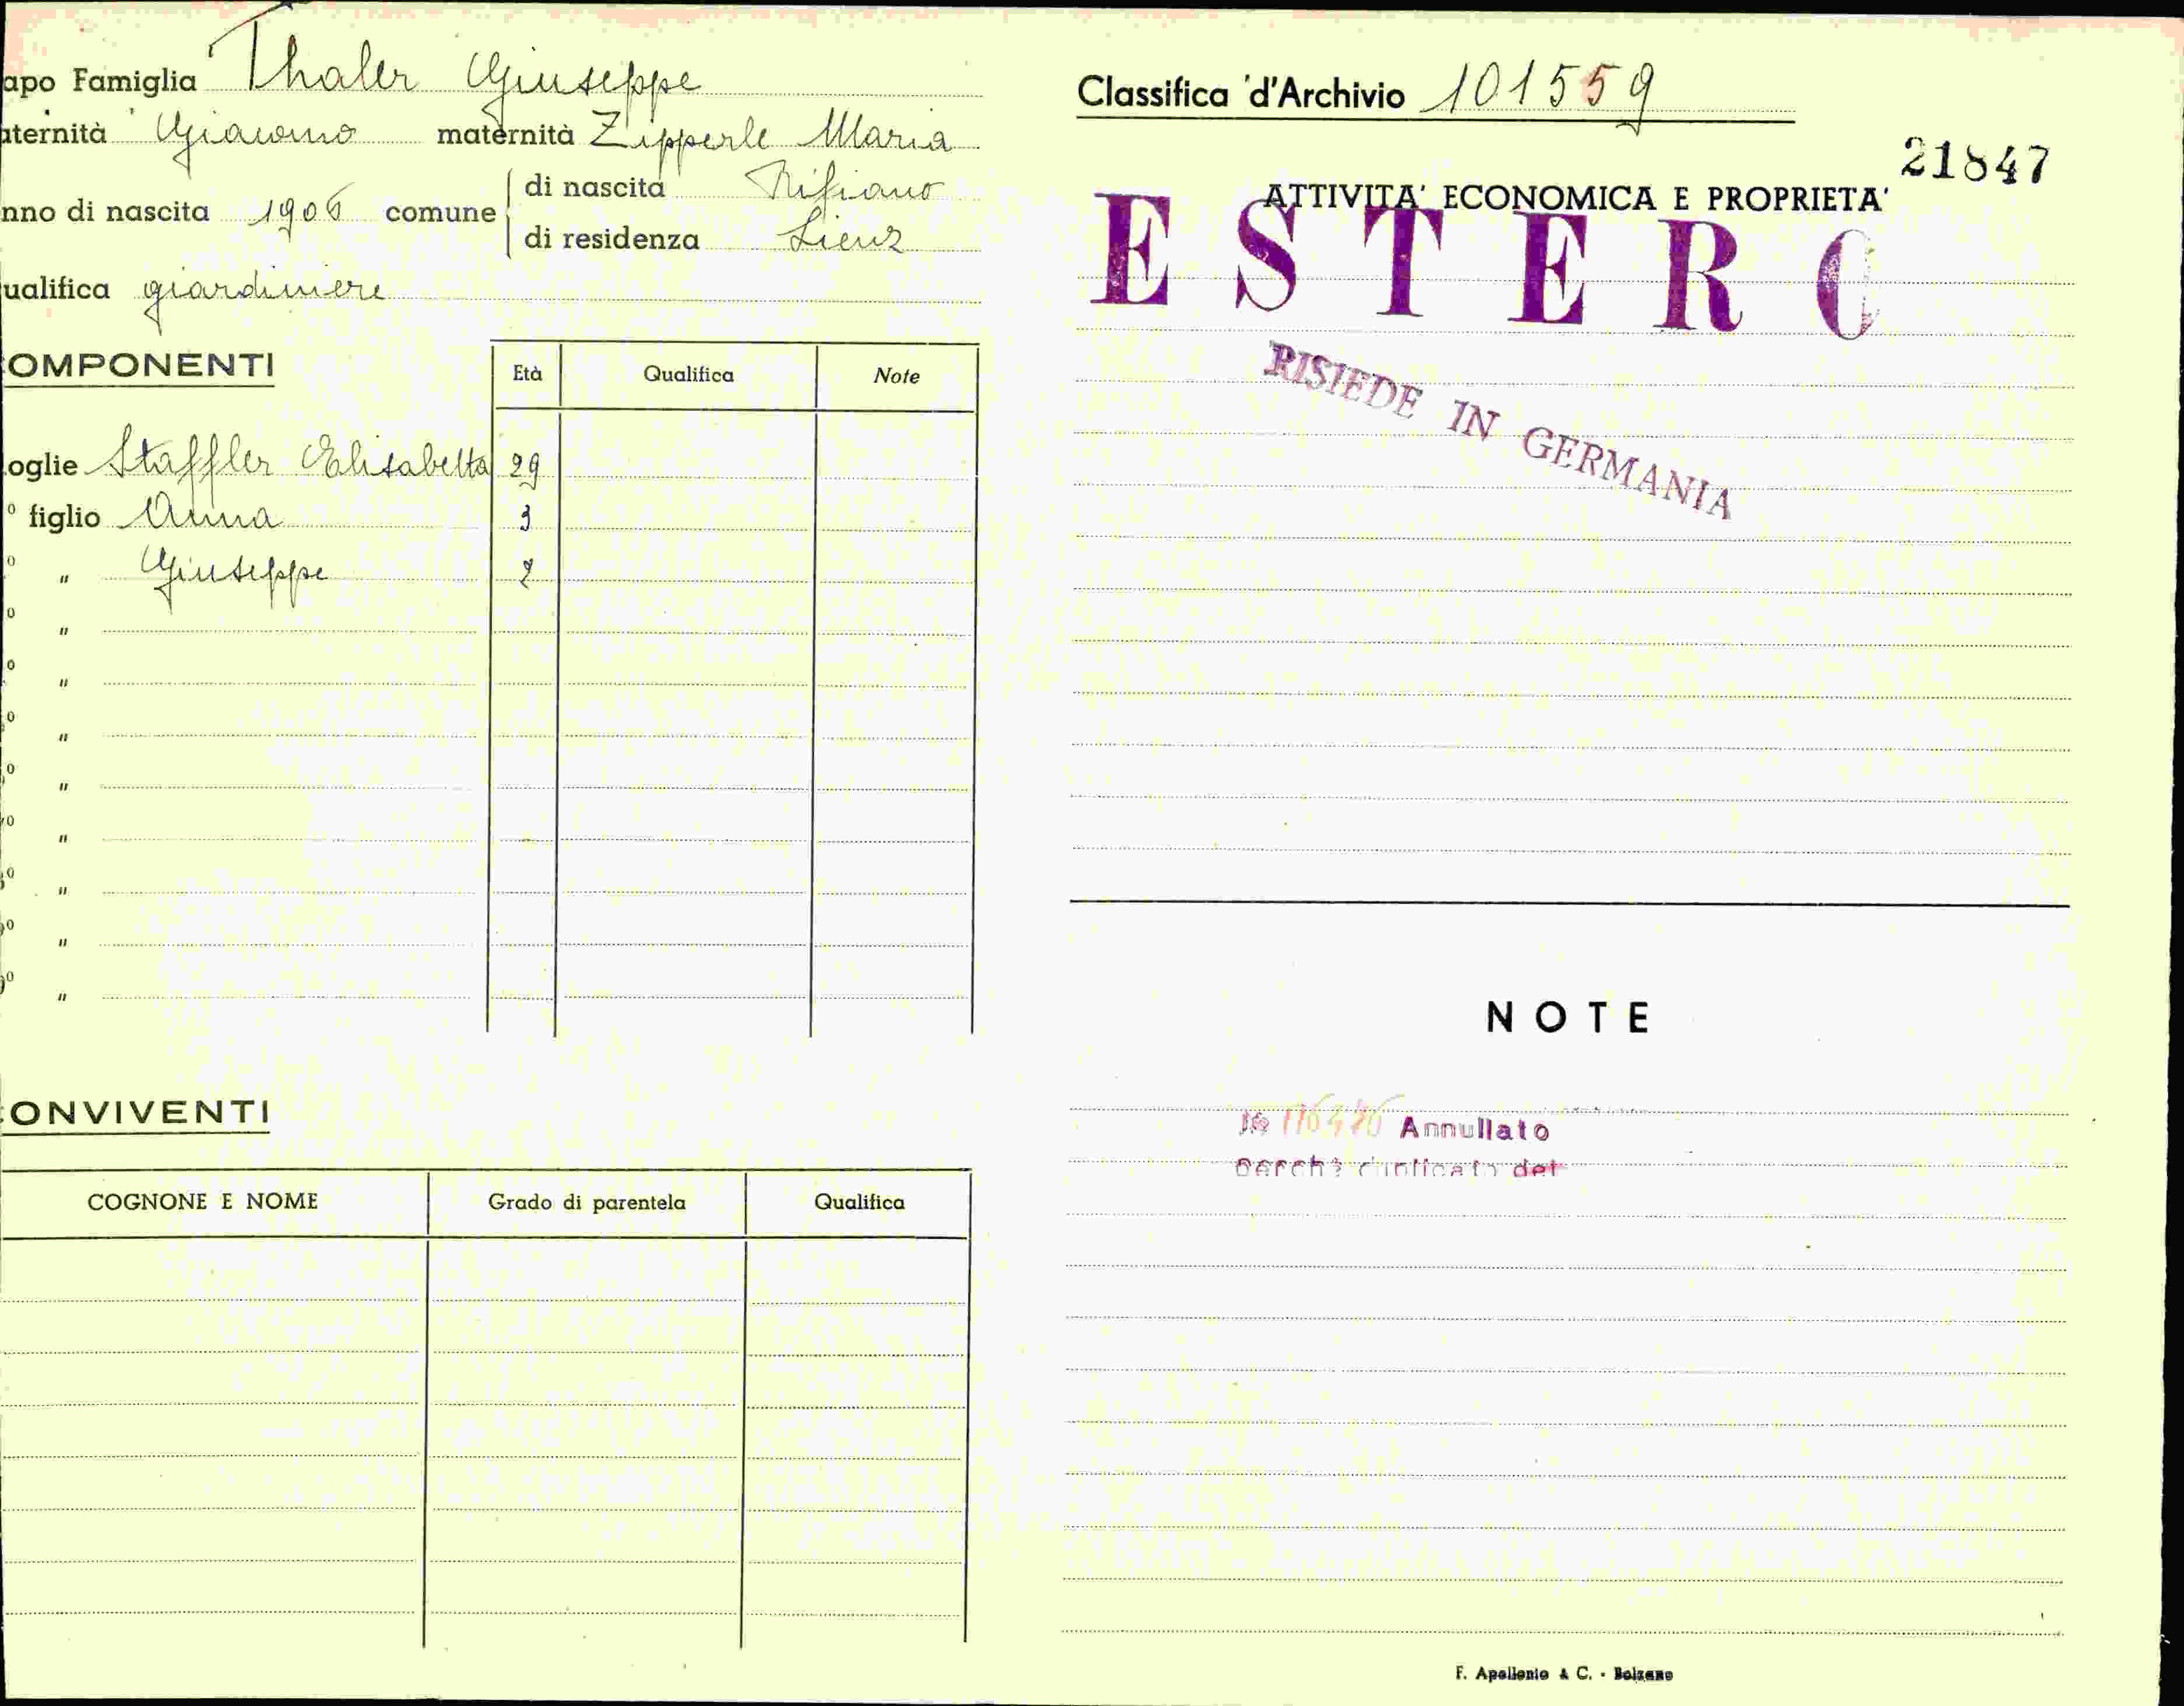 apo Famiglia Thaler Giuseppe
aternità Giacomo maternità Zipperle Maria
nno di nascita 1906 comune di nascita Rifiano
di residenza Lienz
ualifica giardiniere
OMPONENTI
Età Qualifica Note
oglie Staffler Elisabetta 29
° figlio Anna 3
° " Giuseppe 2
° "
° "
° "
° "
° "
° "
° "
° "
ONVIVENTI
COGNONE E NOME Grado di parentela Qualifica
Classifica d'Archivio 101559
21847
ATTIVITA' ECONOMICA E PROPRIETA'
ESTERO
RISIEDE IN GERMANIA
NOTE
Annullato
perchè duplicato del
F. Apollonio & C. - Bolzano